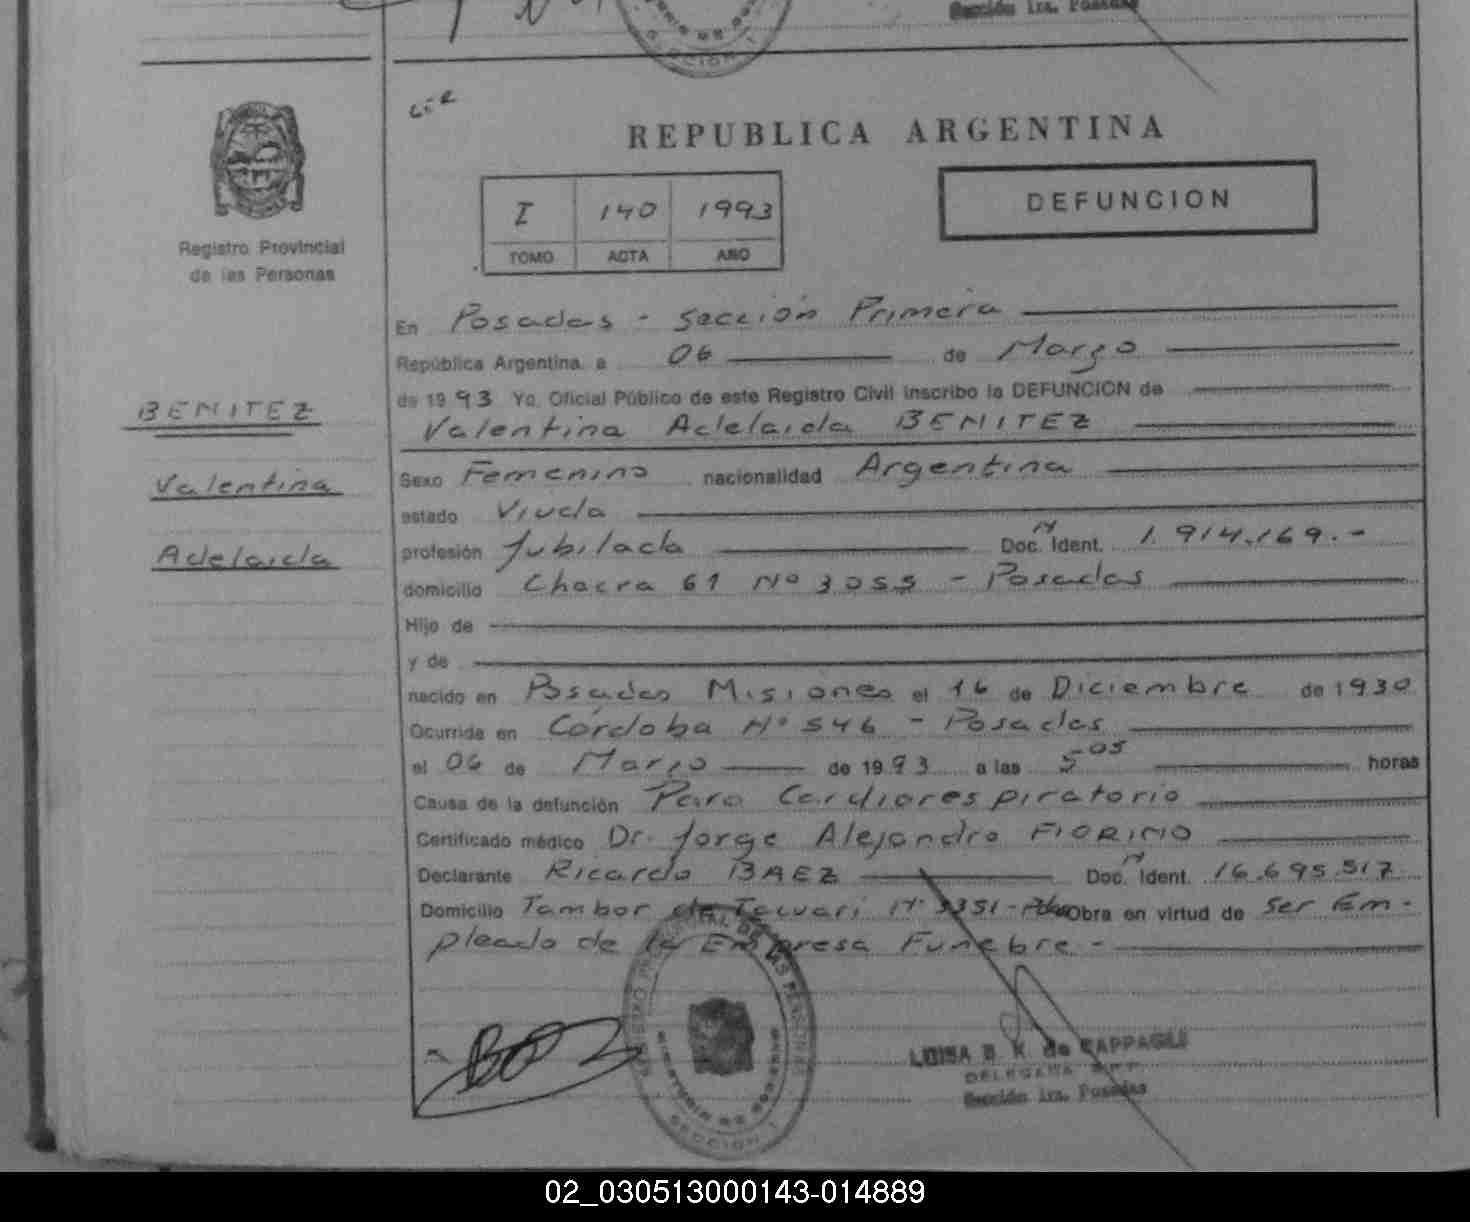 Sección 1ra. Posadas
REPUBLICA ARGENTINA
I 140 1993
TOMO ACTA AÑO
DEFUNCION
Registro Provincial
de las Personas
BENITEZ
Valentina
Adelaida
En Posadas - Sección Primera
República Argentina, a 06 de Marzo
de 1993 Yo, Oficial Público de este Registro Civil inscribo la DEFUNCION de
Valentina Adelaida BENITEZ
Sexo Femenino nacionalidad Argentina
estado Viuda
profesión Jubilada Doc. Ident. 1.914.169.-
domicilio Chacra 61 Nº 3055 - Posadas
Hijo de
y de
nacido en Posadas Misiones el 16 de Diciembre de 1930
Ocurrida en Córdoba Nº 546 - Posadas
el 06 de Marzo de 1993 a las 5 05 horas
Causa de la defunción Paro Cardiorespiratorio
Certificado médico Dr. Jorge Alejandro FIORINO
Declarante Ricardo BAEZ Doc. Ident. 16.695.517
Domicilio Tambor de Tacuari Nº 3351 - Pdas Obra en virtud de ser Em-
pleado de la Empresa Funebre -
LUISA B. K. de
DELEGADA
Sección 1ra. Posadas
SECCION 1
02_030513000143-014889